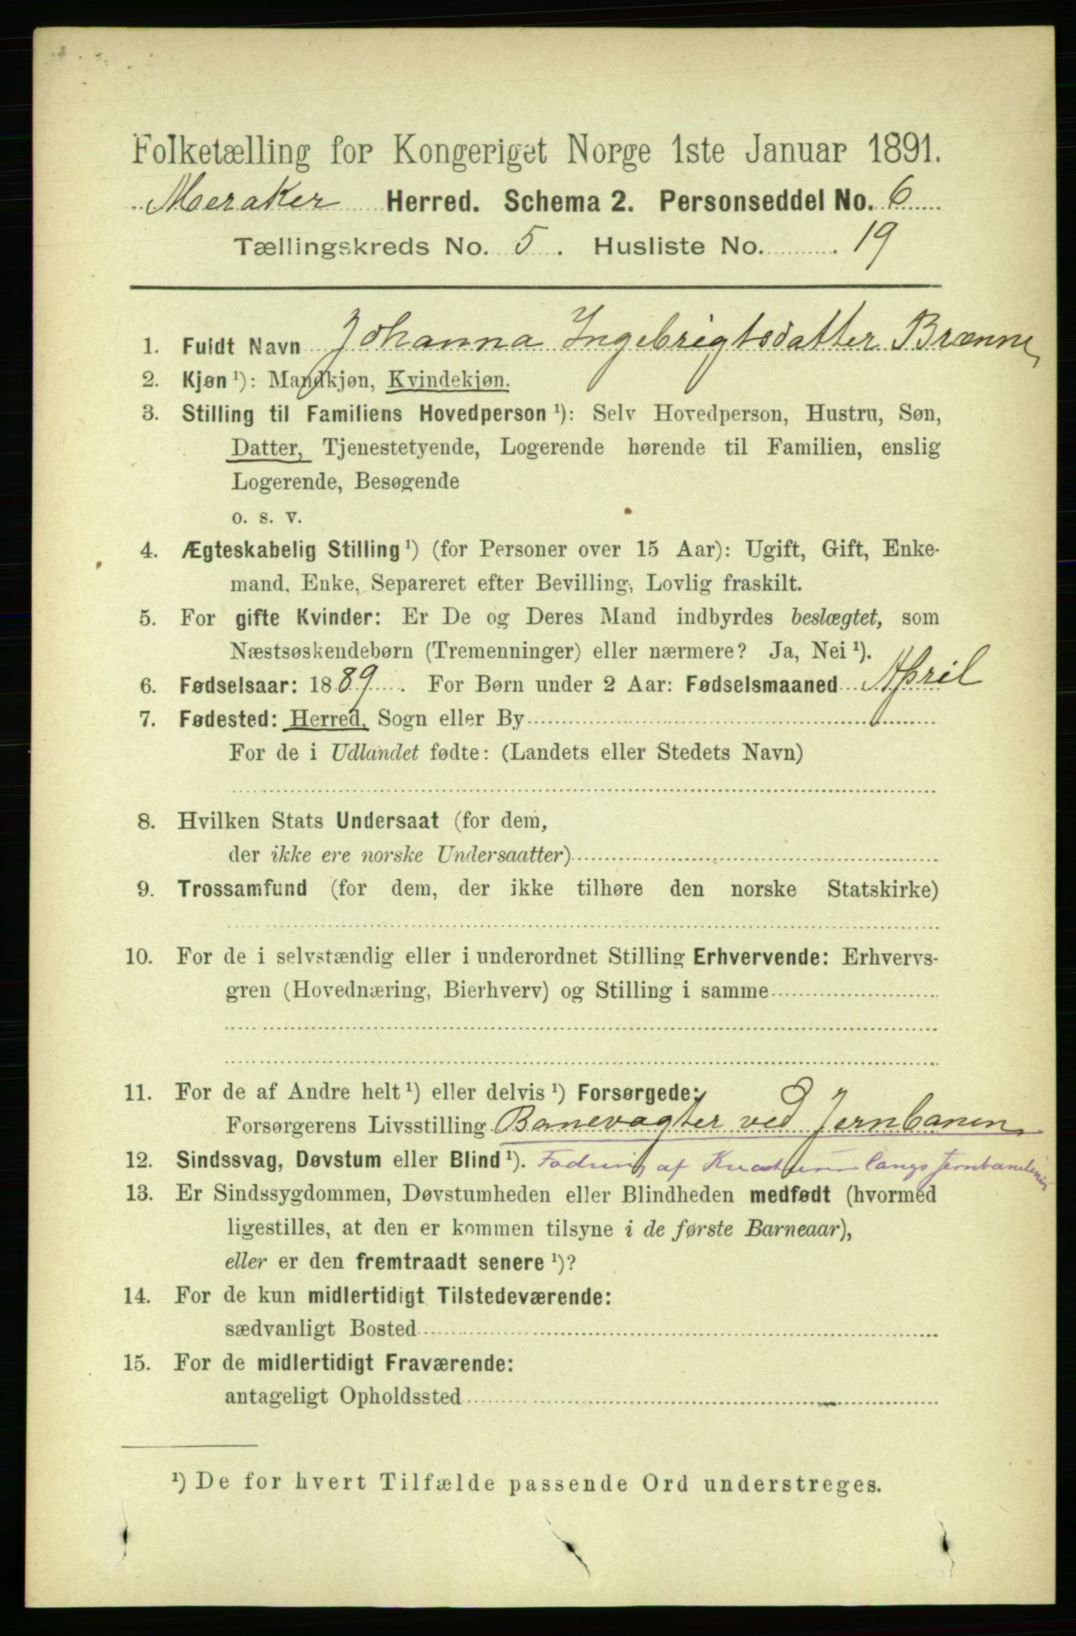 Folketælling for Kongeriget Norge 1ste Januar 1891.
Meraker Herred. Schema 2. Personseddel No. 6
Tællingskreds No. 5. Husliste No. 19
1. Fuldt Navn Johanna Ingebrigtsdatter Brænne
2. Kjøn ¹): Mandkjøn, Kvindekjøn.
3. Stilling til Familiens Hovedperson ¹): Selv Hovedperson, Hustru, Søn,
Datter, Tjenestetyende, Logerende hørende til Familien, enslig
Logerende, Besøgende
o. s. v.
4. Ægteskabelig Stilling ¹) (for Personer over 15 Aar): Ugift, Gift, Enke-
mand, Enke, Separeret efter Bevilling, Lovlig fraskilt.
5. For gifte Kvinder: Er De og Deres Mand indbyrdes beslægtet, som
Næstsøskendebørn (Tremenninger) eller nærmere? Ja, Nei ¹).
6. Fødselsaar: 1889. For Børn under 2 Aar: Fødselsmaaned April
7. Fødested: Herred, Sogn eller By
For de i Udlandet fødte: (Landets eller Stedets Navn)
8. Hvilken Stats Undersaat (for dem,
der ikke ere norske Undersaatter)
9. Trossamfund (for dem, der ikke tilhøre den norske Statskirke)
10. For de i selvstændig eller i underordnet Stilling Erhvervende: Erhvervs-
gren (Hovednæring, Bierhverv) og Stilling i samme
11. For de af Andre helt ¹) eller delvis ¹) Forsørgede:
Forsørgerens Livsstilling Banevogter ved Jernbanen
12. Sindssvag, Døvstum eller Blind ¹). af langs Jernbanelinien
13. Er Sindssygdommen, Døvstumheden eller Blindheden medfødt (hvormed
ligestilles, at den er kommen tilsyne i de første Barneaar),
eller er den fremtraadt senere ¹)?
14. For de kun midlertidigt Tilstedeværende:
sædvanligt Bosted
15. For de midlertidigt Fraværende:
antageligt Opholdssted
¹) De for hvert Tilfælde passende Ord understreges.